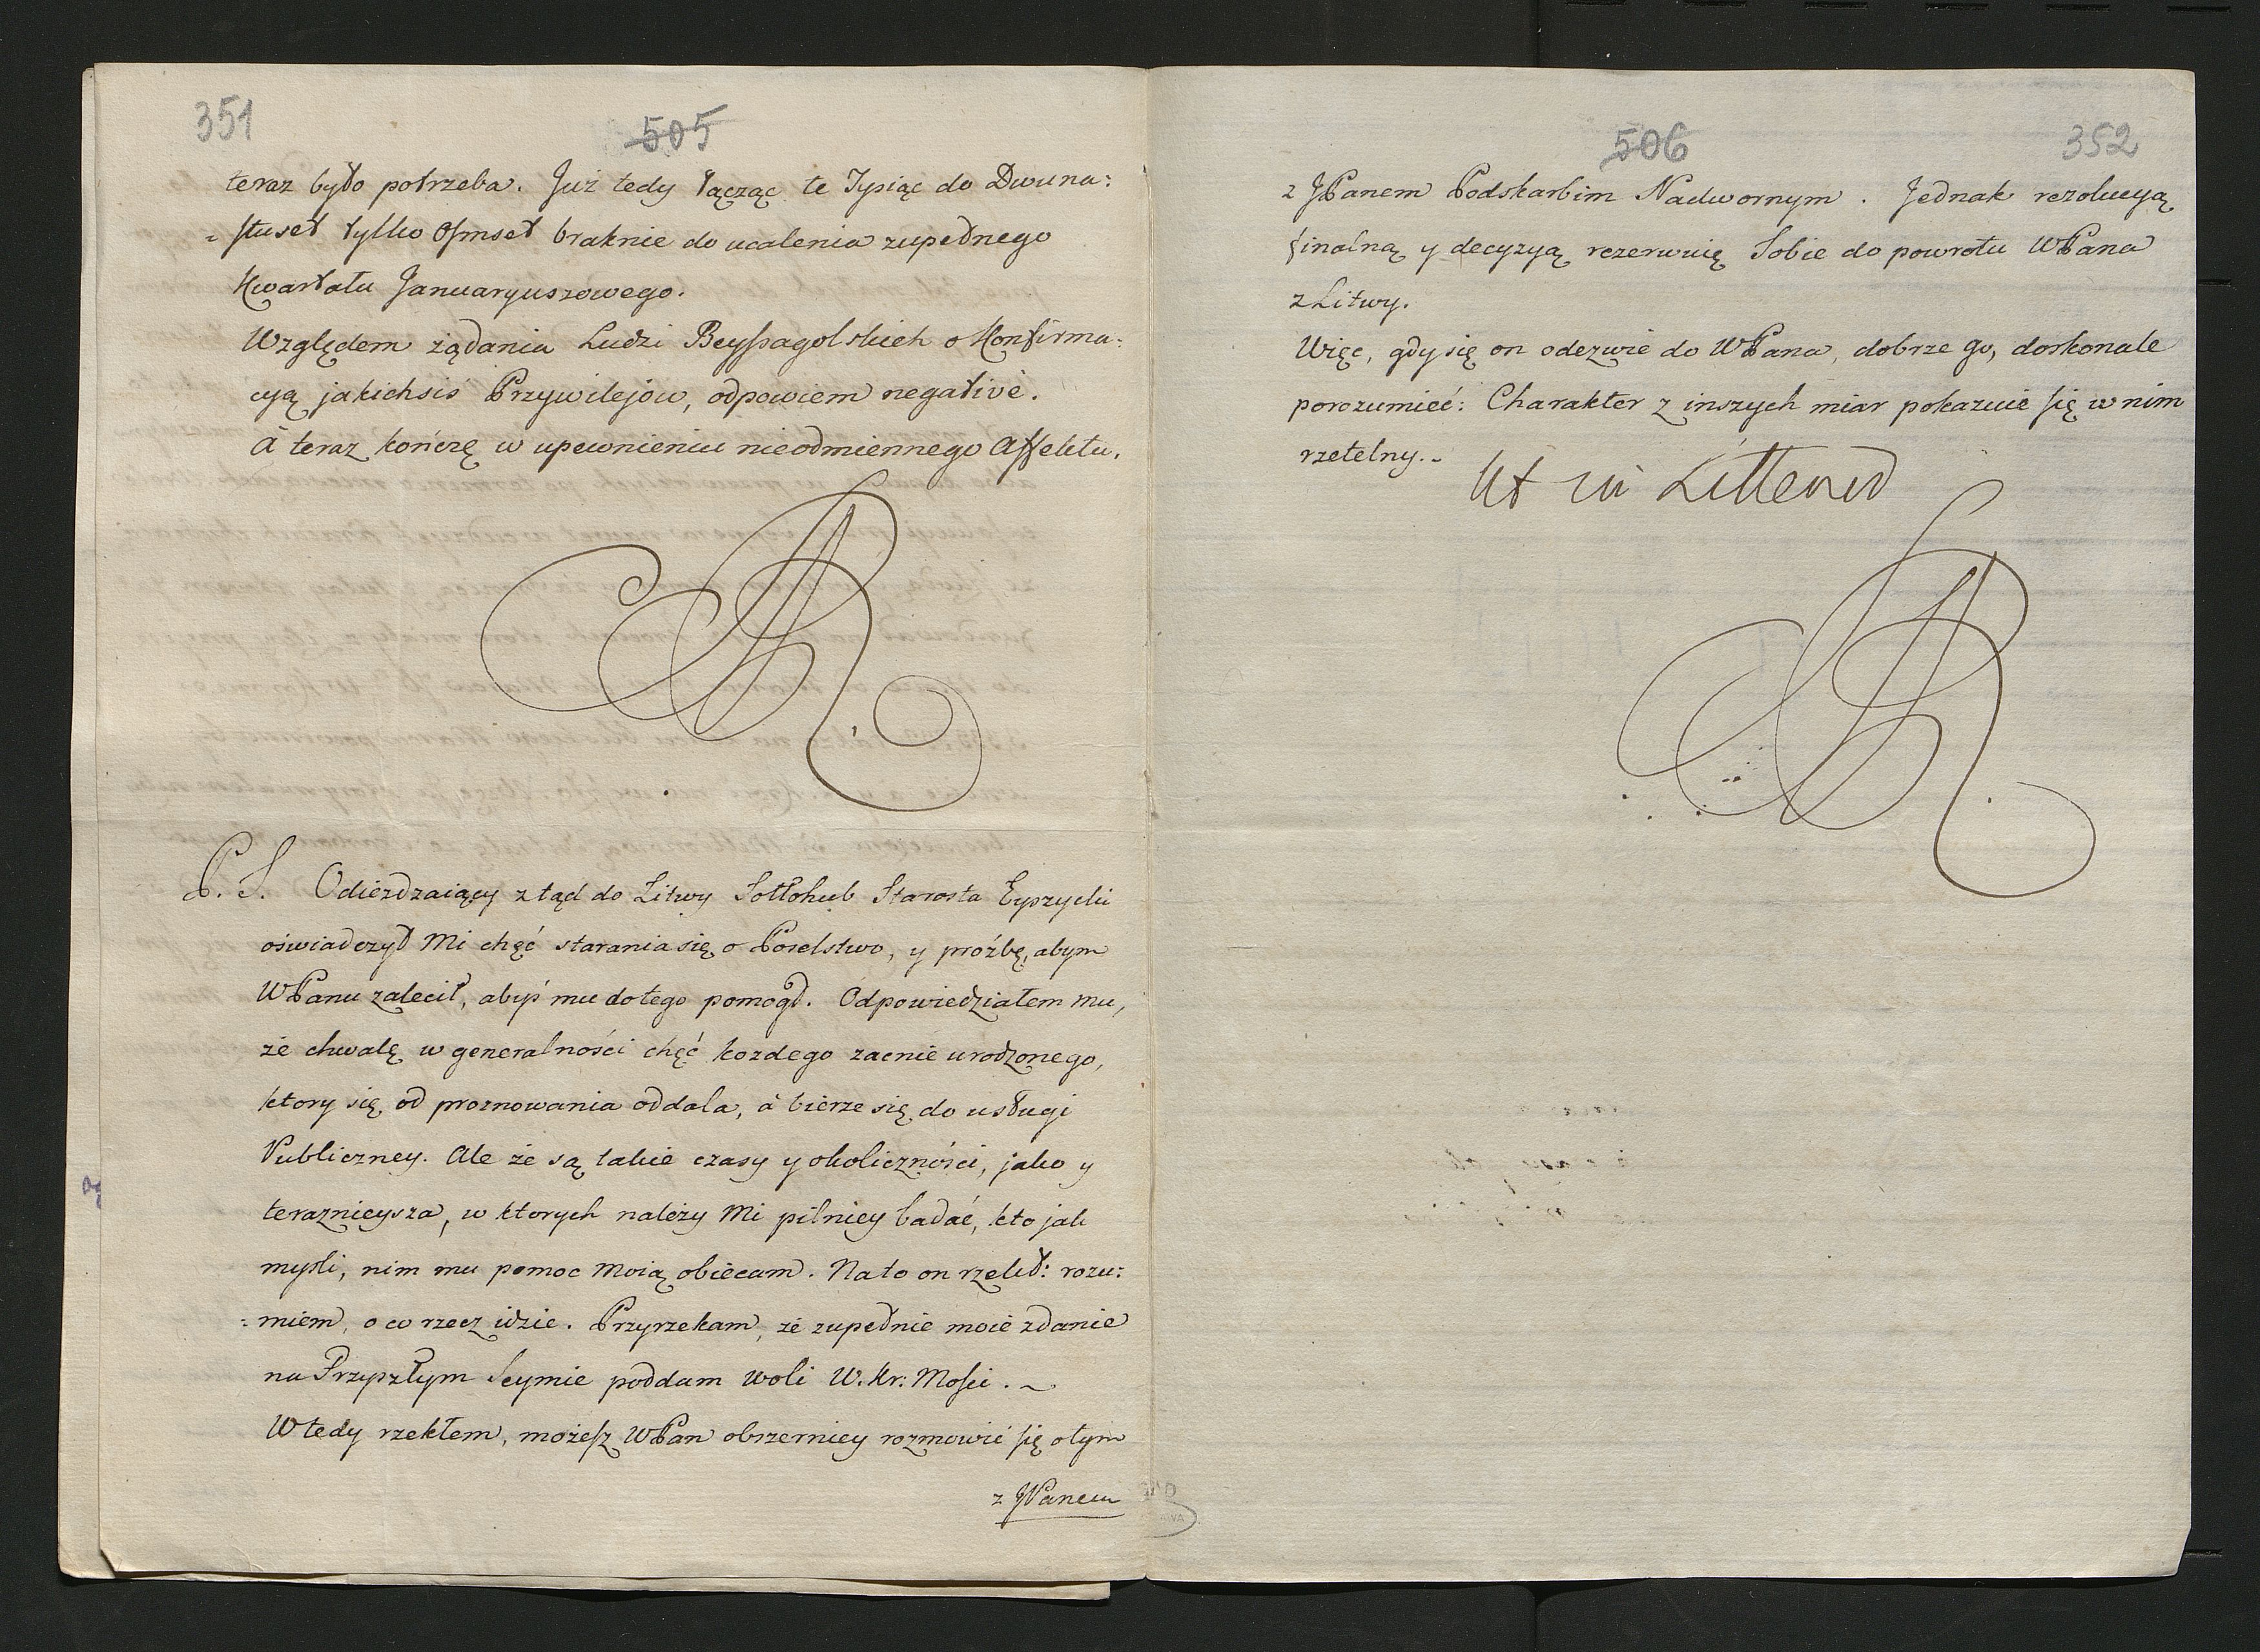 351
505
teraz było potrzeba. Już tedy łącząc te Tysiąc do Dwuna:
=stuset tylko Osmset braknie do ucalenia zupełnego
Kwartału Januaryuszowego.
Względem żądania Ludzi Beyssagolskich o Konfirma:
cyą jakichsiś Przywilejów, odpowiem negativè.
à teraz kończę w upewnieniu nieodmiennego Affektu.
SAR
P. S. Odieżdzaiący ztąd do Litwy Sołłohub Starosta Eyszyski
oświadczył Mi chęć starania się o Poselstwo, y proźbę, abym
WPanu zalecił, abyś mu do tego pomogł. Odpowiedziałem mu,
że chwalę w generalności chęć kozdego zacnie urodzonego,
ktory się od proznowania oddala, à bierze się do usługi
Publiczney. Ale że są takie czasy y okoliczności, jako y
teraznieysza, w ktorych należy Mi pilniey badać, kto jak
mysli, nim mu pomoc Moią obiecam. Na to on rzekł: rozu:
=miem, o co rzecz idzie. Przyrzekam, że zupełnie moie zdanie
na Przyszłym Seymie poddam woli W. Kr: Mości. ~
Wtedy rzekłem, możesz WPan obszerniey rozmowić się o tym
z JPanem
506
352
z JPanem Podskarbim Nadwornym. Jednak rezolucyą
finalną y decyzyą rezerwuię Sobie do powrotu WPana
z Litwy.
Więc, gdy się on odezwie do WPana, dobrze go, doskonale
porozumieć: Charakter z inszych miar pokazuie się w nim
rzetelny. ~
Ut in Litteris
SAR